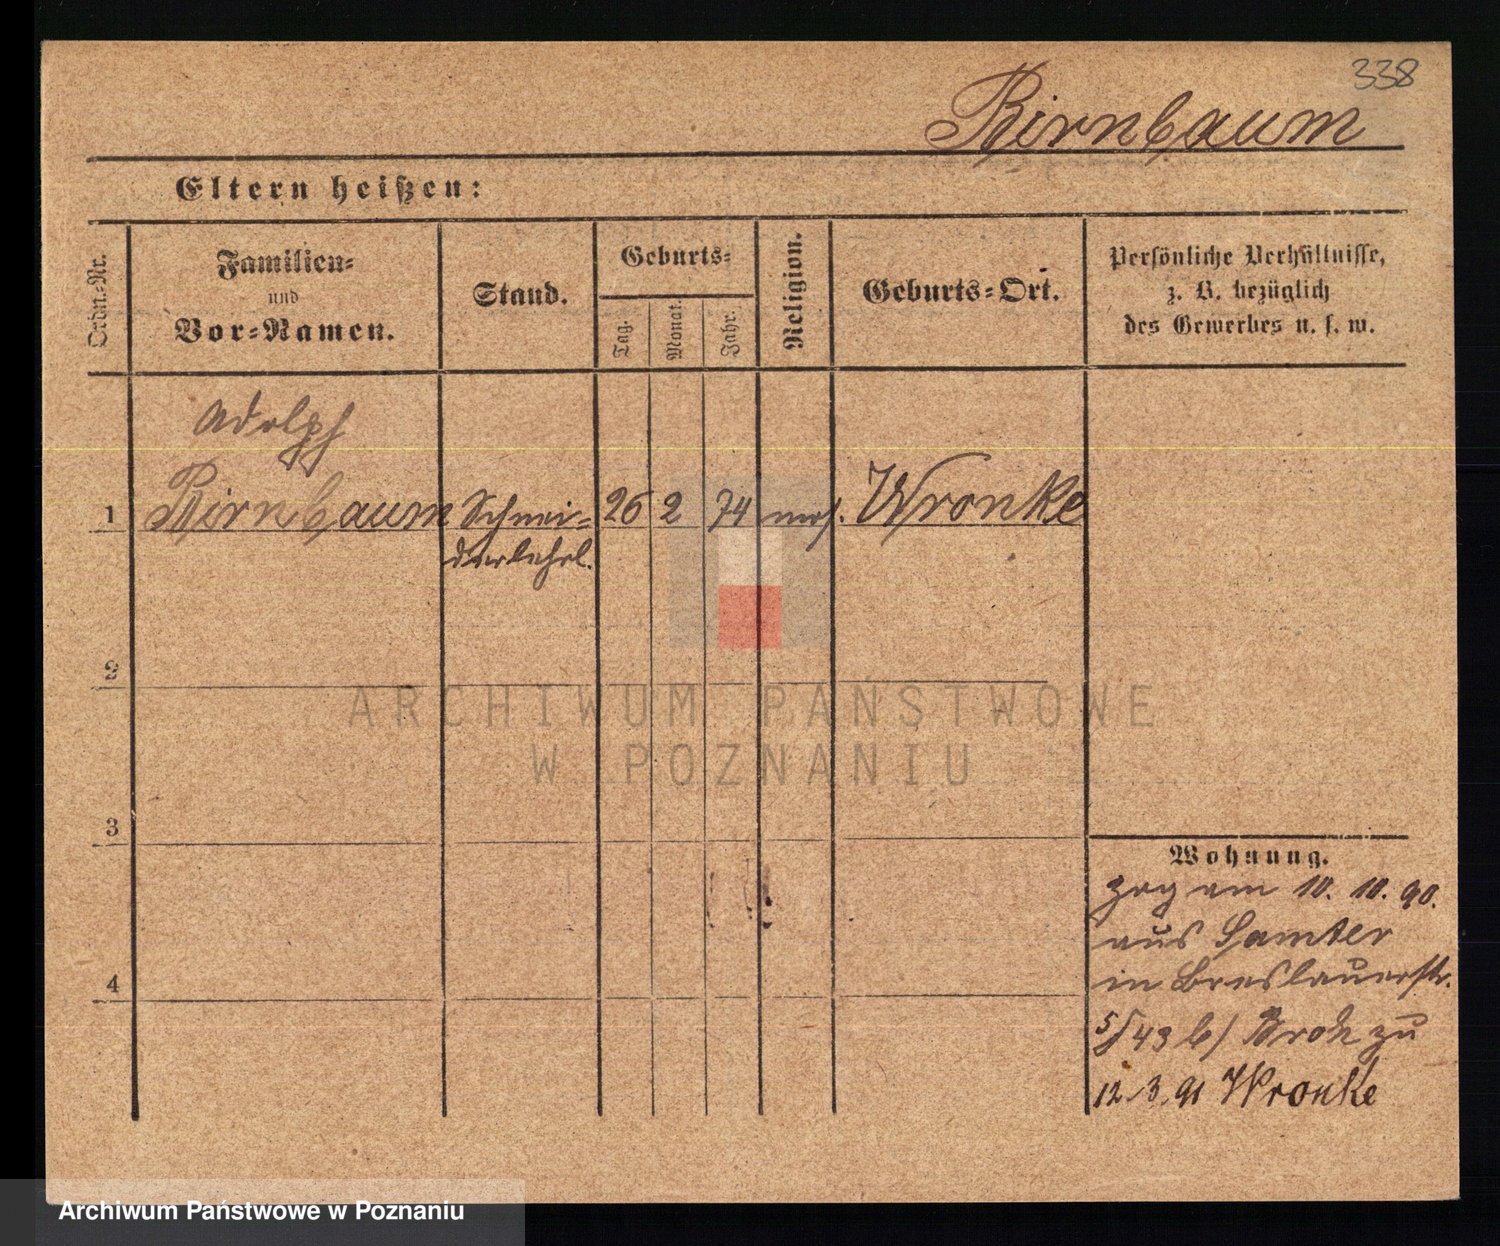 338
Birnbaum
Eltern heißen:
Ordn.-Nr.
Familien-
und
Vor-Namen.
Stand.
Geburts-
Tag.
Monat.
Jahr.
Religion.
Geburts-Ort.
Persönliche Verhältnisse,
z. B. bezüglich
des Gewerbes u. s. w.
Adolph
1 Birnbaum Schnei- 26 2 74 mos. Wronke
derlehrl.
2
3
4
Wohnung.
zog am 10. 10. 90.
aus Samter
in Breslauerstr.
12.3.91 Wronke
ARCHIWUM PAŃSTWOWE
W POZNANIU
Archiwum Państwowe w Poznaniu